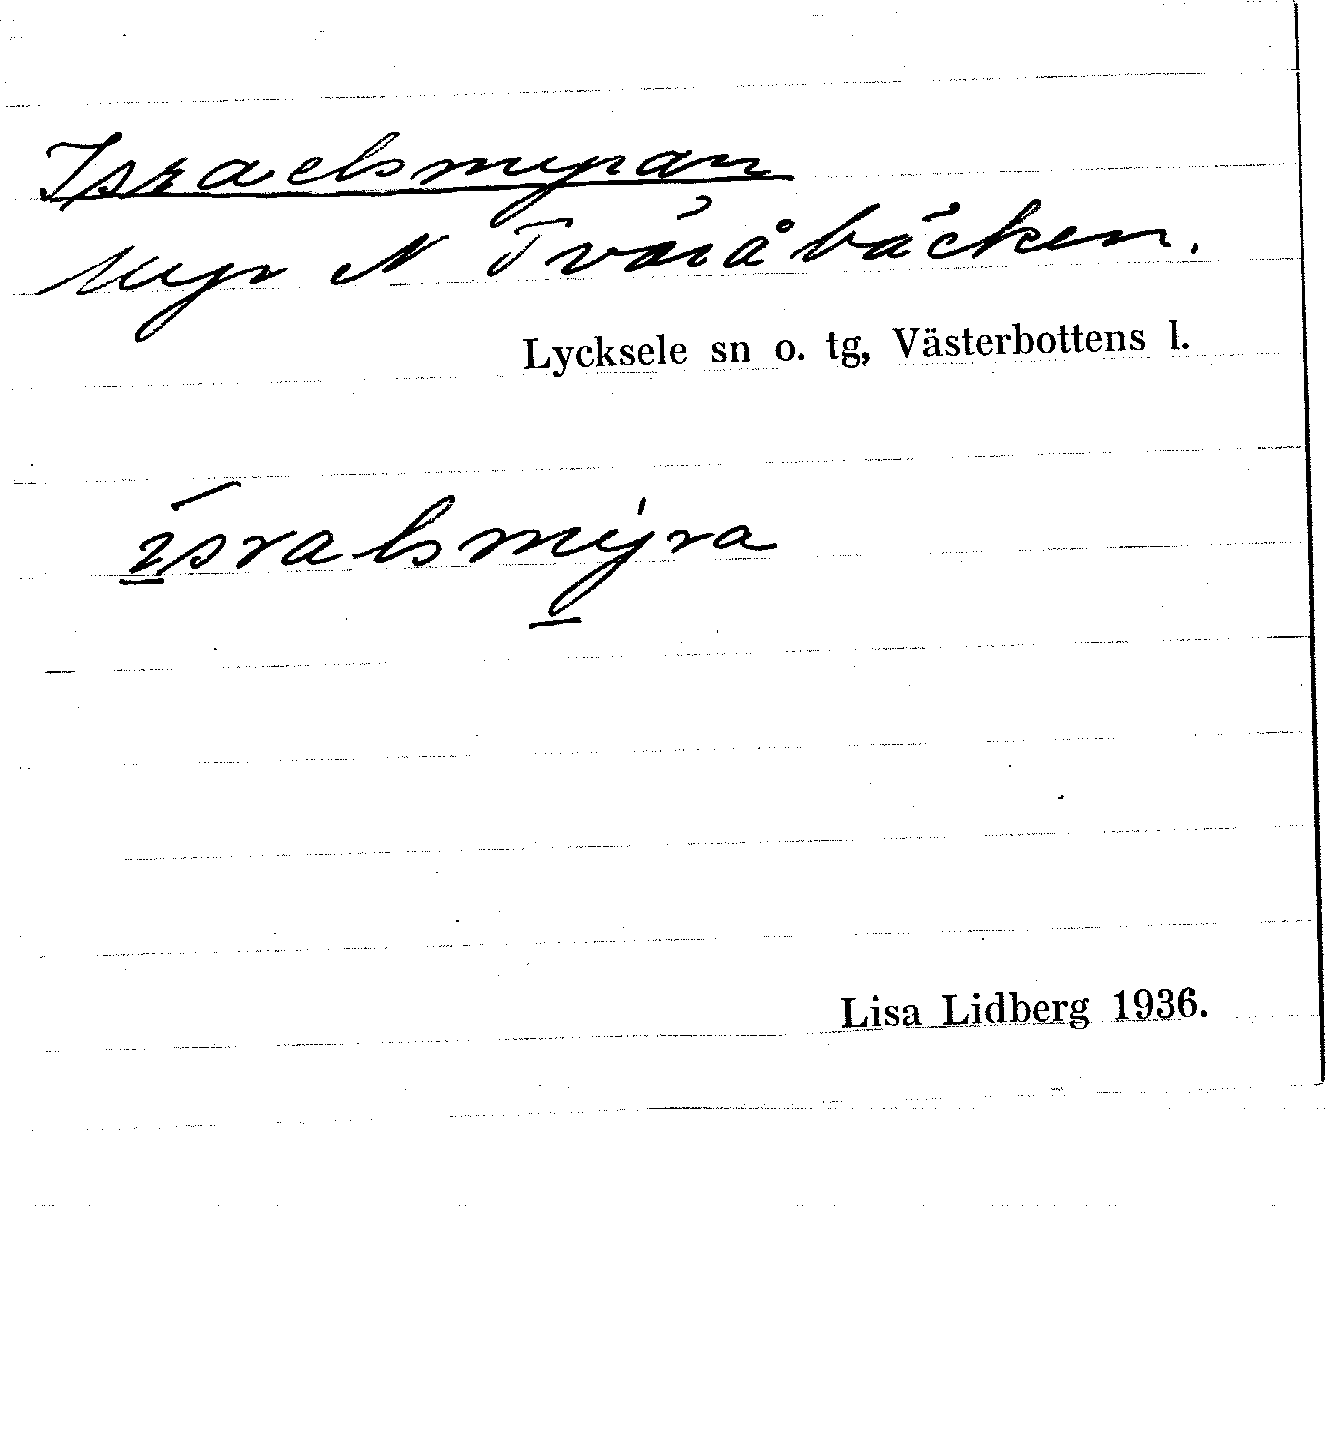 Israelsmyran
Myr N Tväråbäcken.
Lycksele sn o. tg, Västerbottens l.
i̠sralsmy̠ra
Lisa Lidberg 1936.